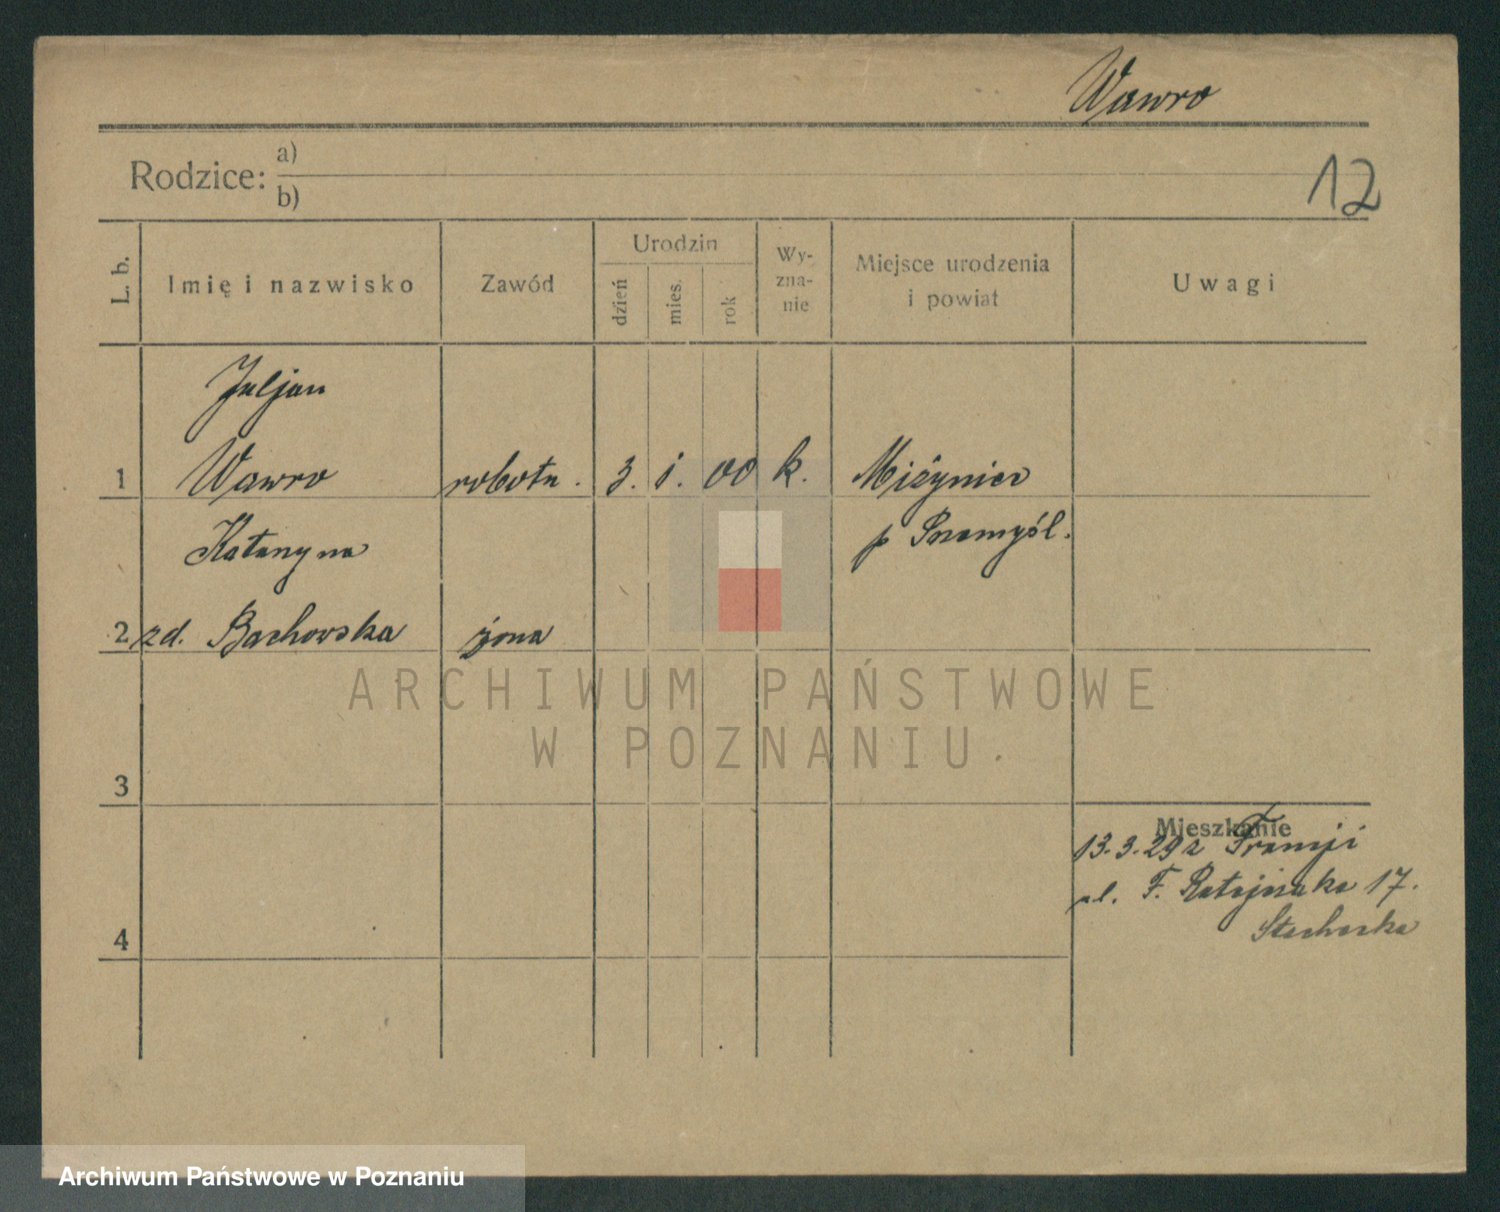 Wawro
Rodzice: a)
b)
12
L. b.
Imię i nazwisko
Zawód
Urodzin
dzień
mies.
rok
Wy-
zna-
nie
Miejsce urodzenia
i powiat
Uwagi
Juljan
1 Wawro robotn. 3. 1. 00 k. Miżyniec
Katarzyna p Przemyśl.
2 zd. Bachowska żona
ARCHIWUM PAŃSTWOWE
W POZNANIU
3
Mieszkanie
13.3.29 z Francji
ul. F. Ratajczaka 17.
4
Archiwum Państwowe w Poznaniu